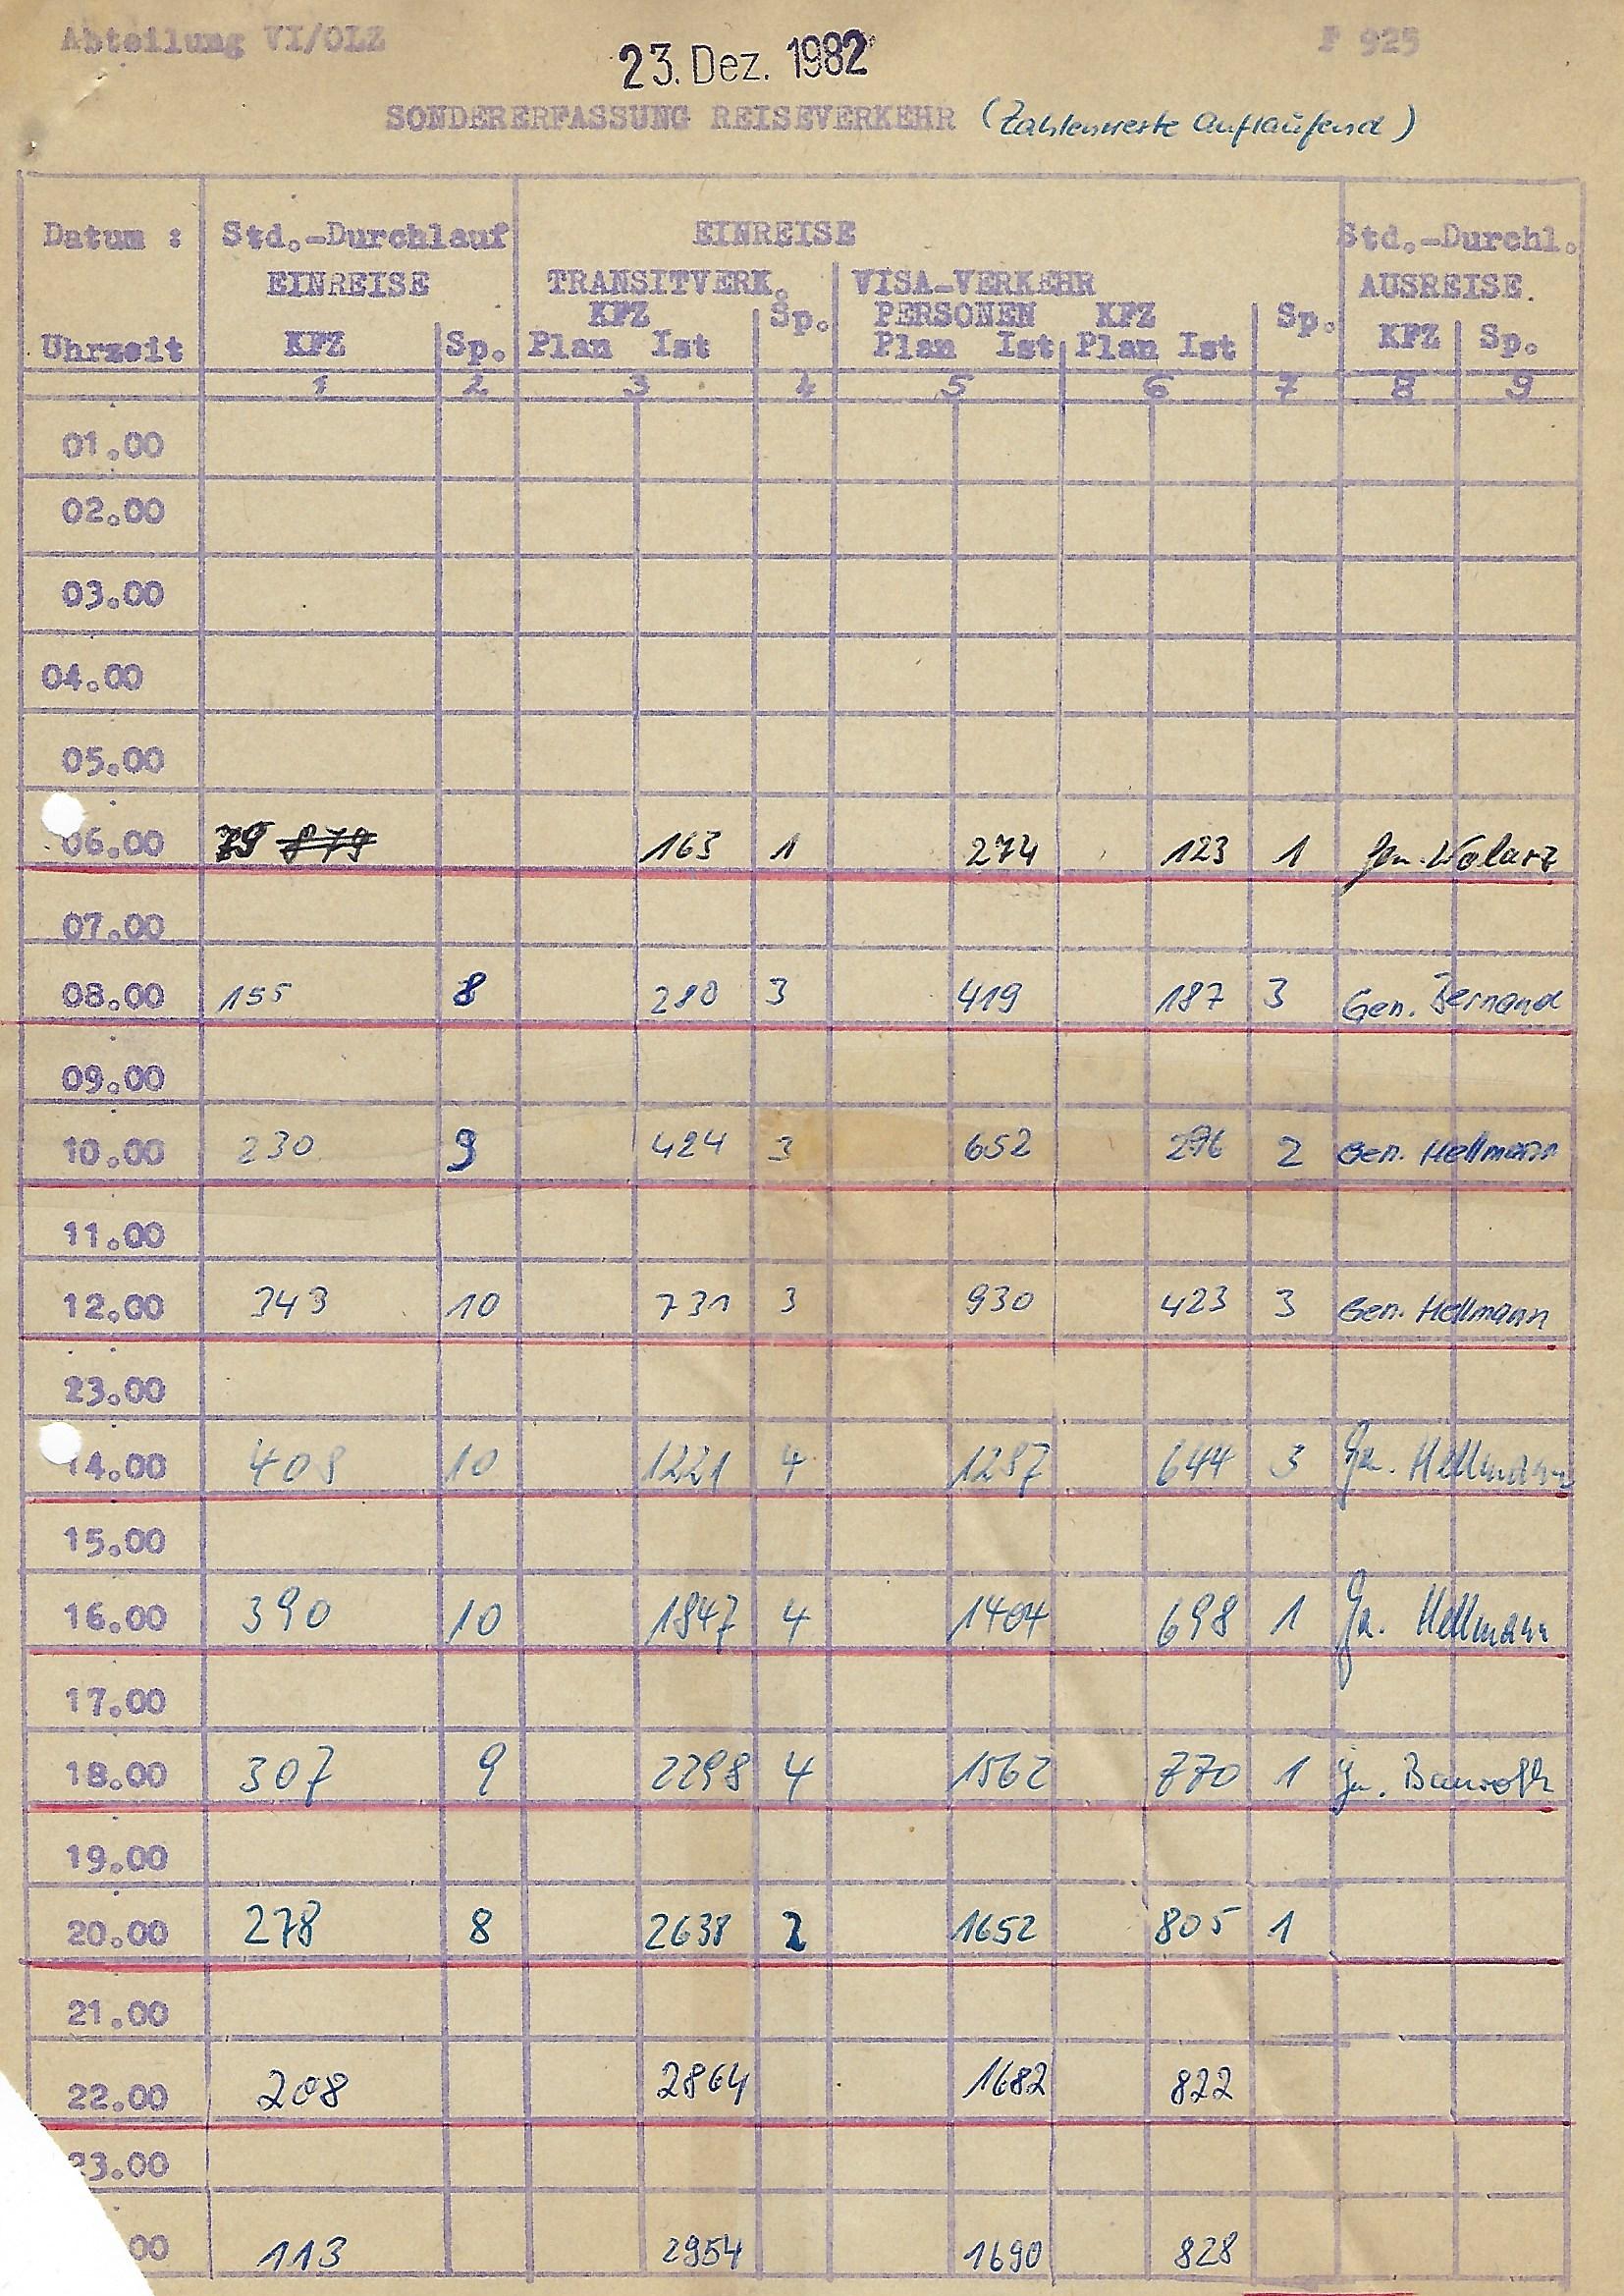 Abteilung VI/OLZ
23. Dez. 1982
P 925
SONDERERFASSUNG REISEVERKEHR (Zahlenwerte Auflaufend)
Datum : Std.-Durchlauf EINREISE Std.-Durchl.
EINREISE TRANSITVERK. VISA-VERKEHR AUSREISE.
KFZ Sp. PERSONEN KFZ Sp.
Uhrzeit KFZ Sp. Plan Ist Plan Ist Plan Ist KFZ Sp.
1 2 3 4 5 6 7 8 9
01.00
02.00
03.00
04.00
05.00
06.00 79 879 163 1 274 123 1 Gen.
07.00
08.00 155 8 280 3 419 187 3 Gen. Bernand
09.00
10.00 230 9 424 3 652 296 2 Gen. Hellmann
11.00
12.00 343 10 731 3 930 423 3 Gen. Hellmann
23.00
14.00 408 10 1221 4 1287 644 3 Gen. Hellmann
15.00
16.00 390 10 1847 4 1404 698 1 Gen. Hellmann
17.00
18.00 307 9 2298 4 1562 770 1 Gen.
19.00
20.00 278 8 2638 2 1652 805 1
21.00
22.00 208 2864 1682 822
23.00
00 113 2954 1690 828